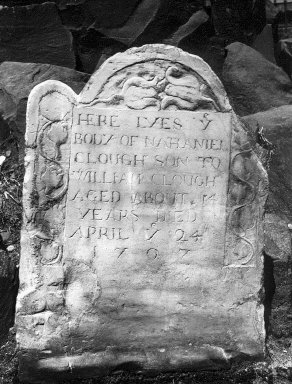 HERE LYES Y
BODY OF NAHANIEL
CLOUGH SON TO
WILLIAM CLOUGH
AGED ABOUT 14
YEARS DIED
APRIL Y 24
1707